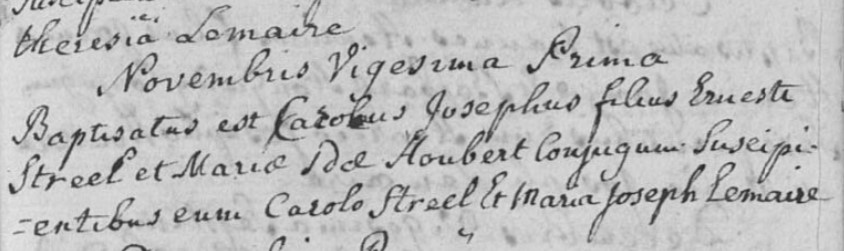 theresiä Lemaire
Novembris Vigesima Prima
Baptisatus est Carolus Josephus filius Ernesti
Streel et Mariæ Idæ Houbert Conjugum Suscipi-
=entibus eum Carolo Streel Et Maria Joseph Lemaire